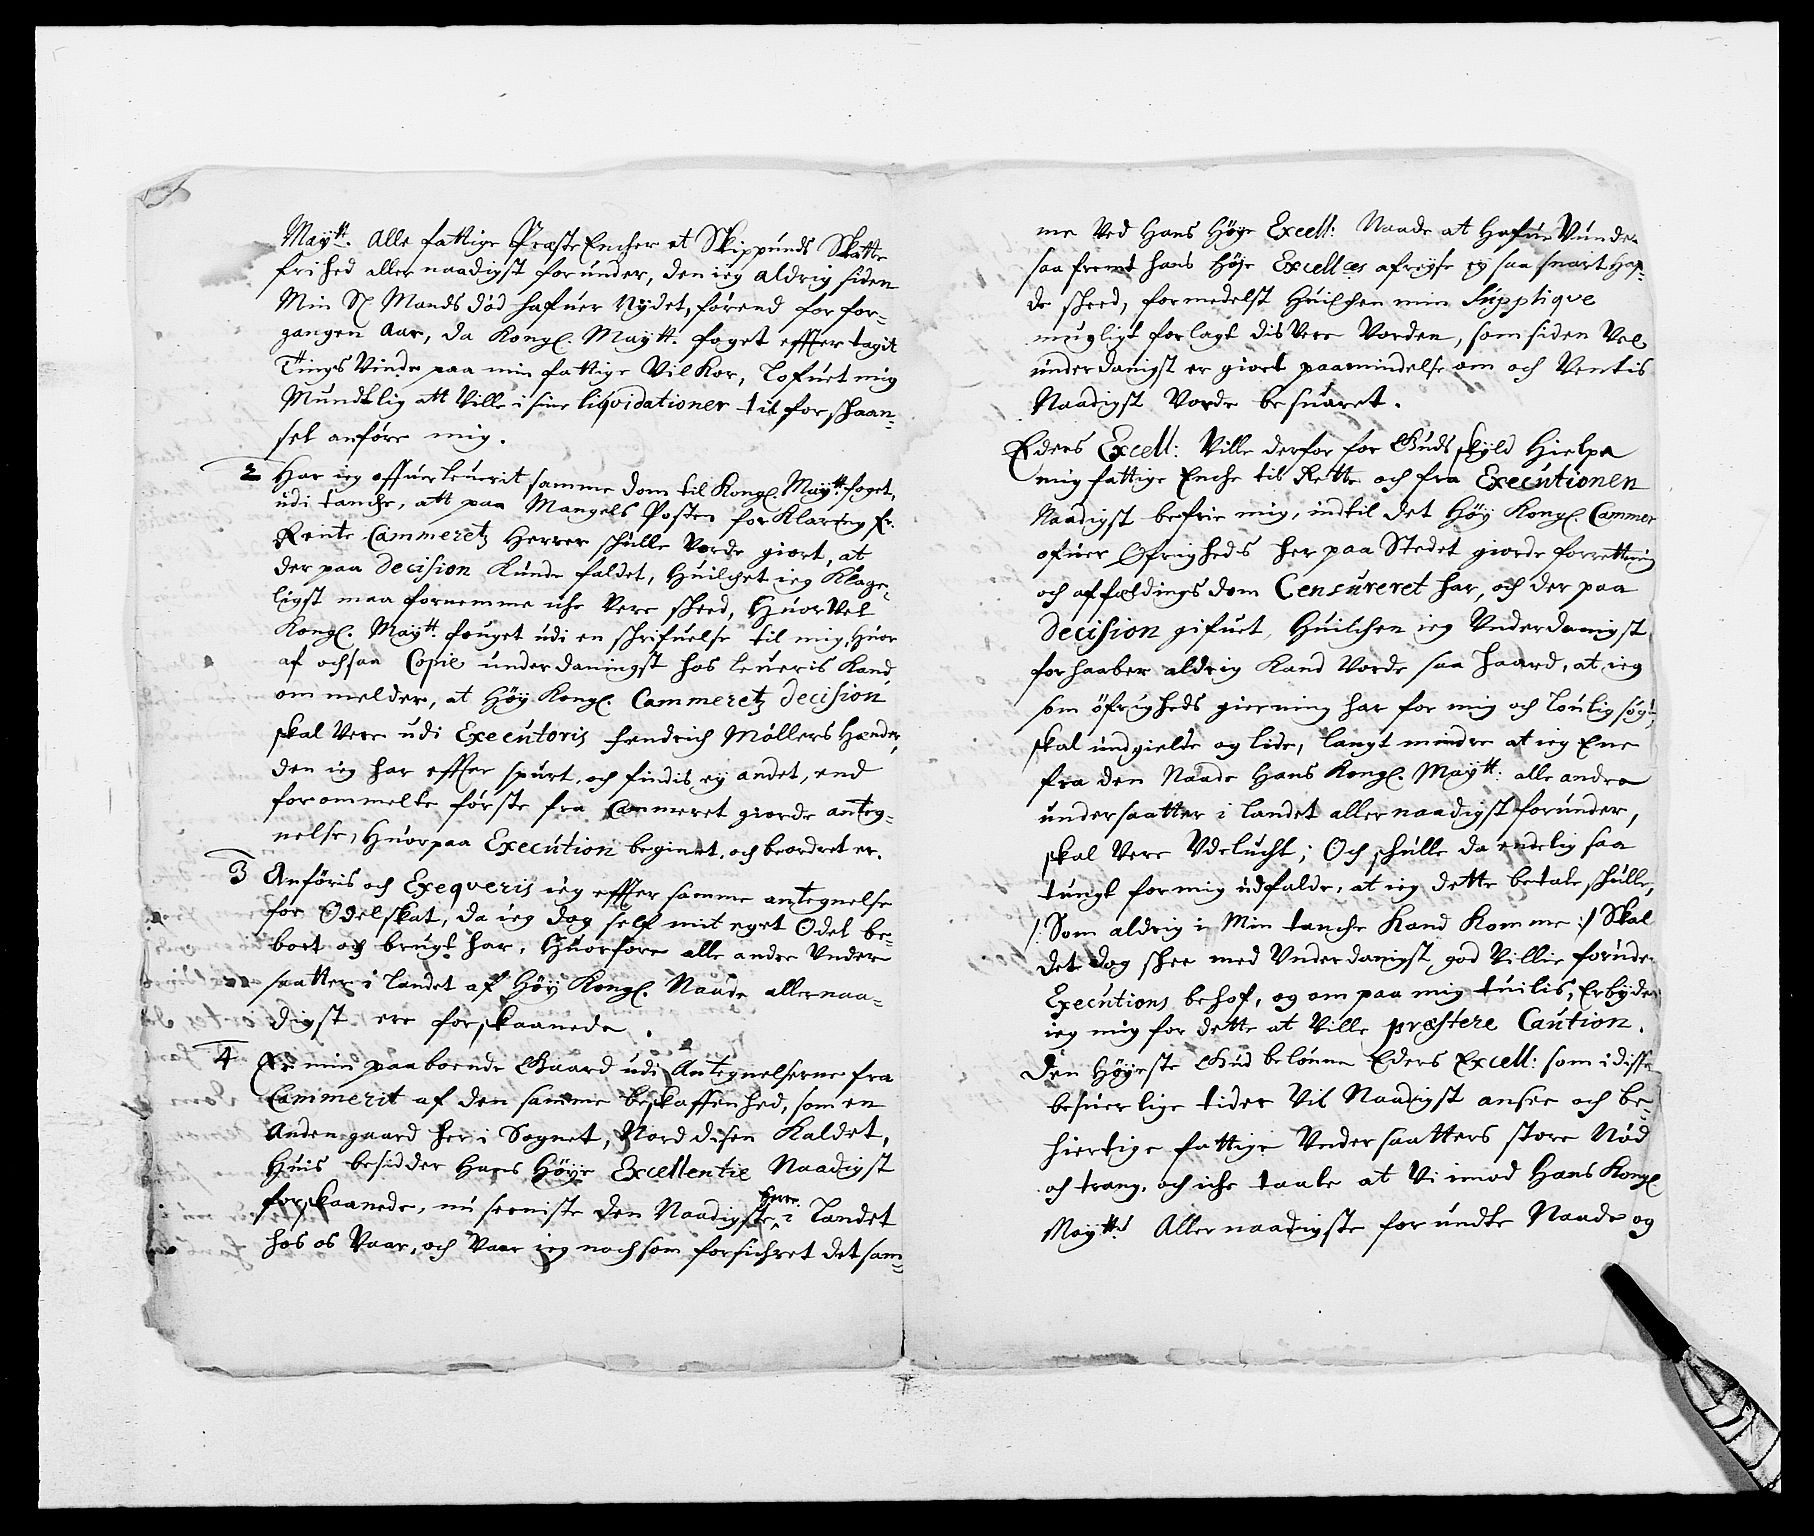 Maytt. Alle fattige Præste Encher et Skippunds Skatte
frihed allernaadigst forunder, den ieg aldrig siden
Min Sl Mands död hafuer Nydet, förend for for-
gangen Aar, da Kongl. Maytt. foget effter tagit
Tings Vinde paa min fattige Vilkor, Lofuet mig
Mundtlig att Ville i sine liqvidationer til forschaan-
sel anföre mig.
2 Har ieg offuerleuerit samme dom til Kongl. Maytt. foget,
udi tanche, att paa Mangels Posten forklaring for
Rente Cammeretz Herrer schulle Vorde giort, at
der paa Decision Kunde faldet, Huilchet ieg Klage-
ligst maa fornemme iche Vere scheed, Huor Vel
Kongl. Maytt. fouget udi en schrifuelse til mig, Huor
af ochsaa Copie underdanigst hos leueris Kand,
om melder, at Höy Kongl. Cammeretz Decision
skal Vere udi Executoris Hendrich Möllers Hænder,
den ieg har effter spurt, och findis ey andet, end
forommelte förste fra Cammeret giorde anteg-
nelse, Huorpaa Execution begiert, och beordret er.
3 Anföris och Exeqveris ieg effter samme antegnelse
for Odelskat, da ieg dog self mit eget Odel be-
boet og brugt har, Huorfore alle andre Under
saatter i Landet af Höy Kongl. Naade allernaa-
digst ere forskaanede.
4 Er min paaboende Gaard udi Antegnelserne fra
Cammerit af den samme beskaffenhed, som en
Anden gaard her i Sognet, Norddisen Kaldet,
Huis besidder Hans Höye Excellentie Naadigst
forskaanede, nu seeniste den Naadigste Herre i Landet
hos os Vaar, och Vaar ieg noch som forsichret det sam-
me Ved Hans Höye Excell: Naade at Hafue Vunden
saa fremt hans Höje Excellces afreyse ey saa snart Haf-
de scheed, formedelst Huilchen min Supplique
mugligt forlagt dis Vere Vorden, som siden Vel
underdanigst er giort paamindelse om och Ventis
Naadigst Vorde besuaret.
Eders Excell: Ville derfor for Guds skyld Hielpe
mig fattige Enche til Rette och fra Executionen
Naadigst befrie mig, indtil det Höy Kongl. Cammer
ofuer Öfrigheds her paa Stedet giorde forretning
och affældings dom Censureret har, och der paa
Decision gifuet, Huilchen ieg Underdanigst
forhaaber aldrig Kand Vorde saa haard, at ieg
som öfrigheds gierning har for mig och Loulig sögt,
skal undgielde og lide, langt mindre at ieg Ene
fra den Naade Hans Kongl. Maytt: alle andre
undersaatter i Landet allernaadigst forunder,
skal Vere Udelucht; Och schulle da endelig saa
tungt for mig udfalde, at ieg dette betale schulle,
/: Som aldrig i Min tanche Kand Komme :/ Skal
det dog schee med Underdanigst god Villie foruden
Executions behof, og om paa mig tuilis, Erbyder
ieg mig for dette at Ville præstere Caution.
Den Höyeste Gud belönne Eders Excell: som i disse
besuerlige tider Vil Naadigst ansee och be-
hiertige fattige Undersaatters store Nöd
och trang, och iche taale at Vi imod Hans Kongl
Maytts Allernaadigste forundte Naade og